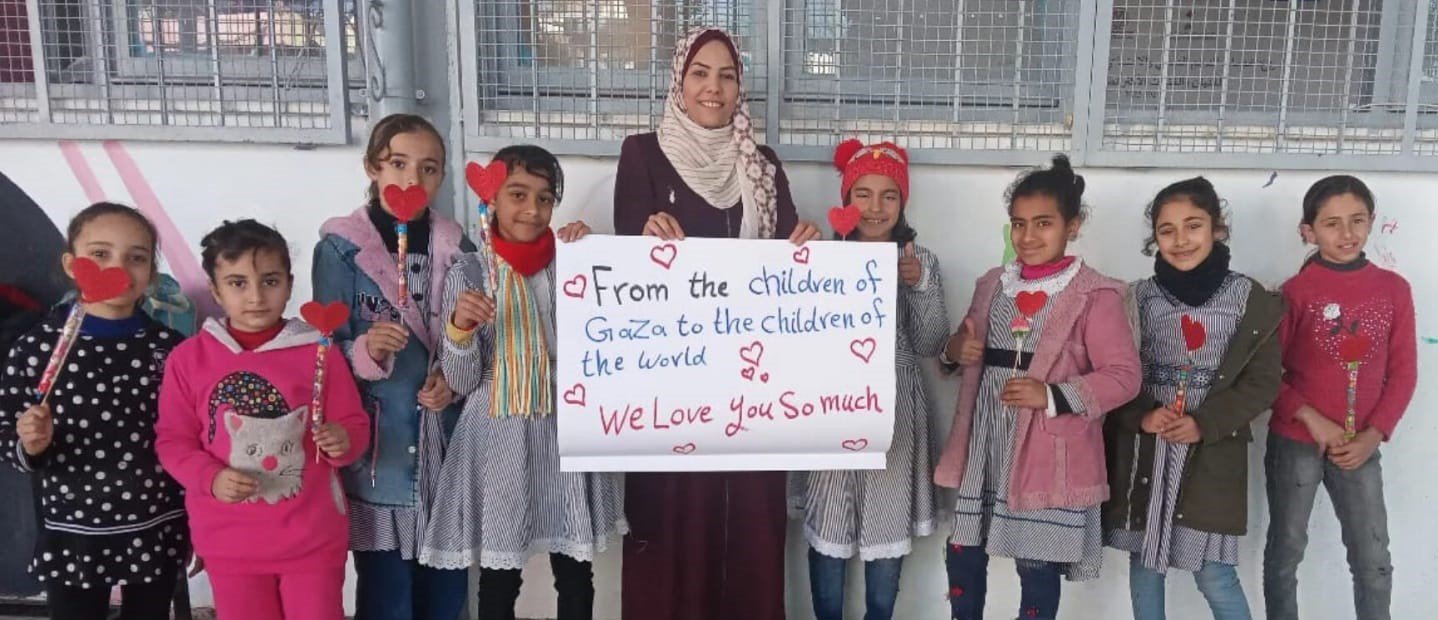 From the children of
Gaza to the children of
the world
We Love you So much